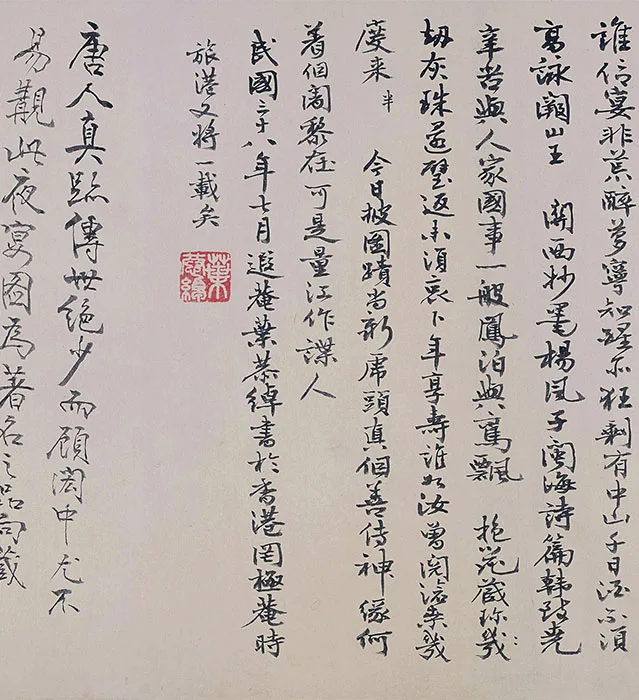 誰信宴非荒醉夢寧知醒不狂剩有中山千日酒不須
高詠山王　關西抄墨楊風子閩海詩篇韓致堯
辛苦與人家國事一般鳳泊與鸞飄　抱藏珍幾
劫灰珠還璧返未須哀卜年享壽誰如汝曾閱滄桑幾
度来半　今日披圖蹟尚新虎頭真個善傳神緣何
着個闍黎在可是量江作諜人
民國三十八年七月遐菴葉恭綽書於香港罔極菴時
旅港又將一載矣
葉恭綽
唐人真跡傳世絕少而顧閎中尤不
易覯此夜宴圖為著名之品向藏